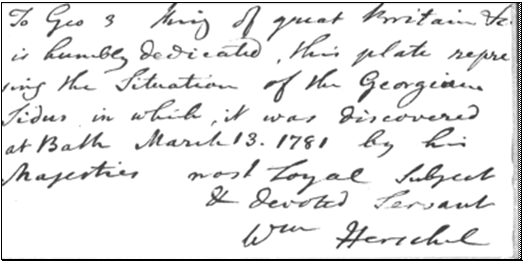 To Geo 3 King of great Britain &c.
is humbly dedicated, this plate repre
sing the Situation of the Georgian
Sidus in which, it was discovered
at Bath March 13. 1781 by his
Majesties most Loyal Subject
& devoted Servant
Wm Herschel